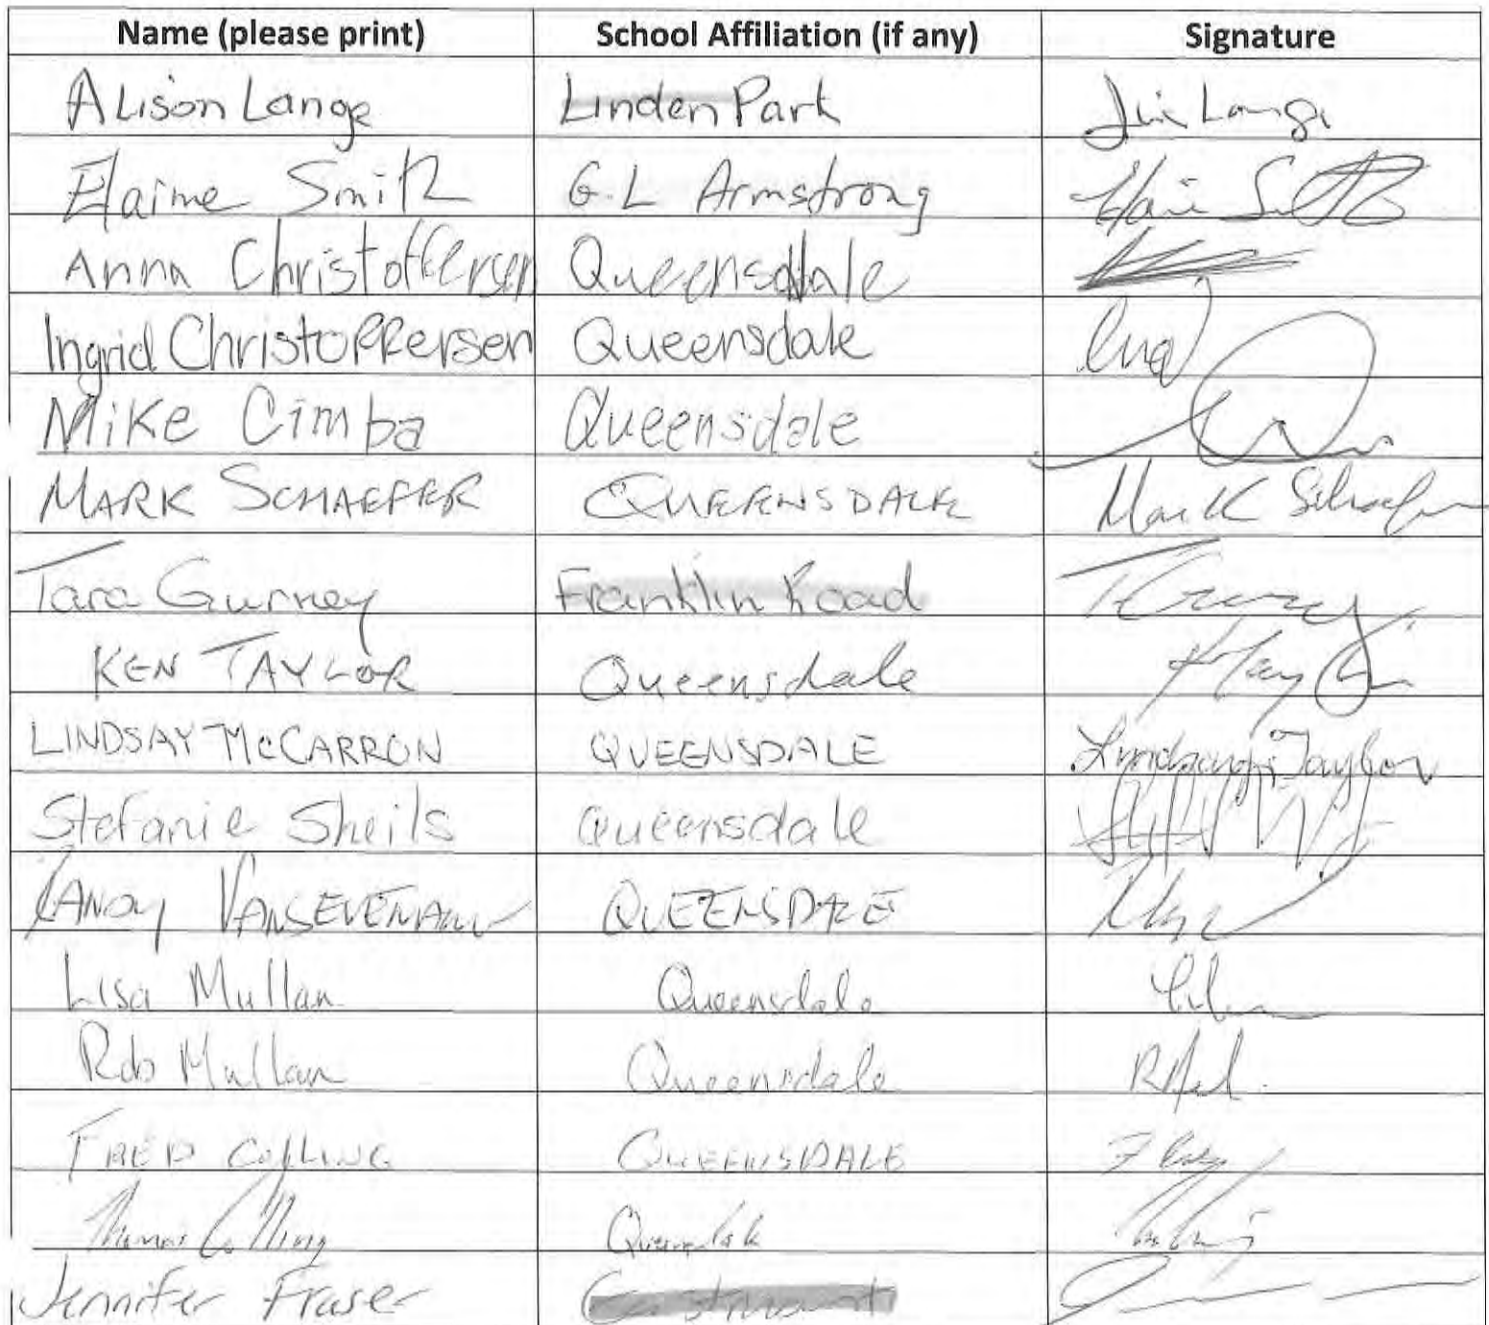 Name (please print) School Affiliation (if any) Signature
Alison Lange Linden Park Lange
Elaine Smith G.L Armstrong
Anna Christoffersen Queensdale
Ingrid Christoffersen Queensdale
Mike Cimba Queensdale
MARK SCHAEFER QUEENSDALE Mark Schaefer
Tara Gurney Franklin Road
KEN TAYLOR Queensdale
LINDSAY McCARRON QUEENSDALE Taylor
Stefanie Sheils Queensdale
QUEENSDALE
Lisa Mullan Queensdale
Rob Mullan Queensdale
FRED COLLING QUEENSDALE
Thomas Colling Queensdale
Jennifer Fraser